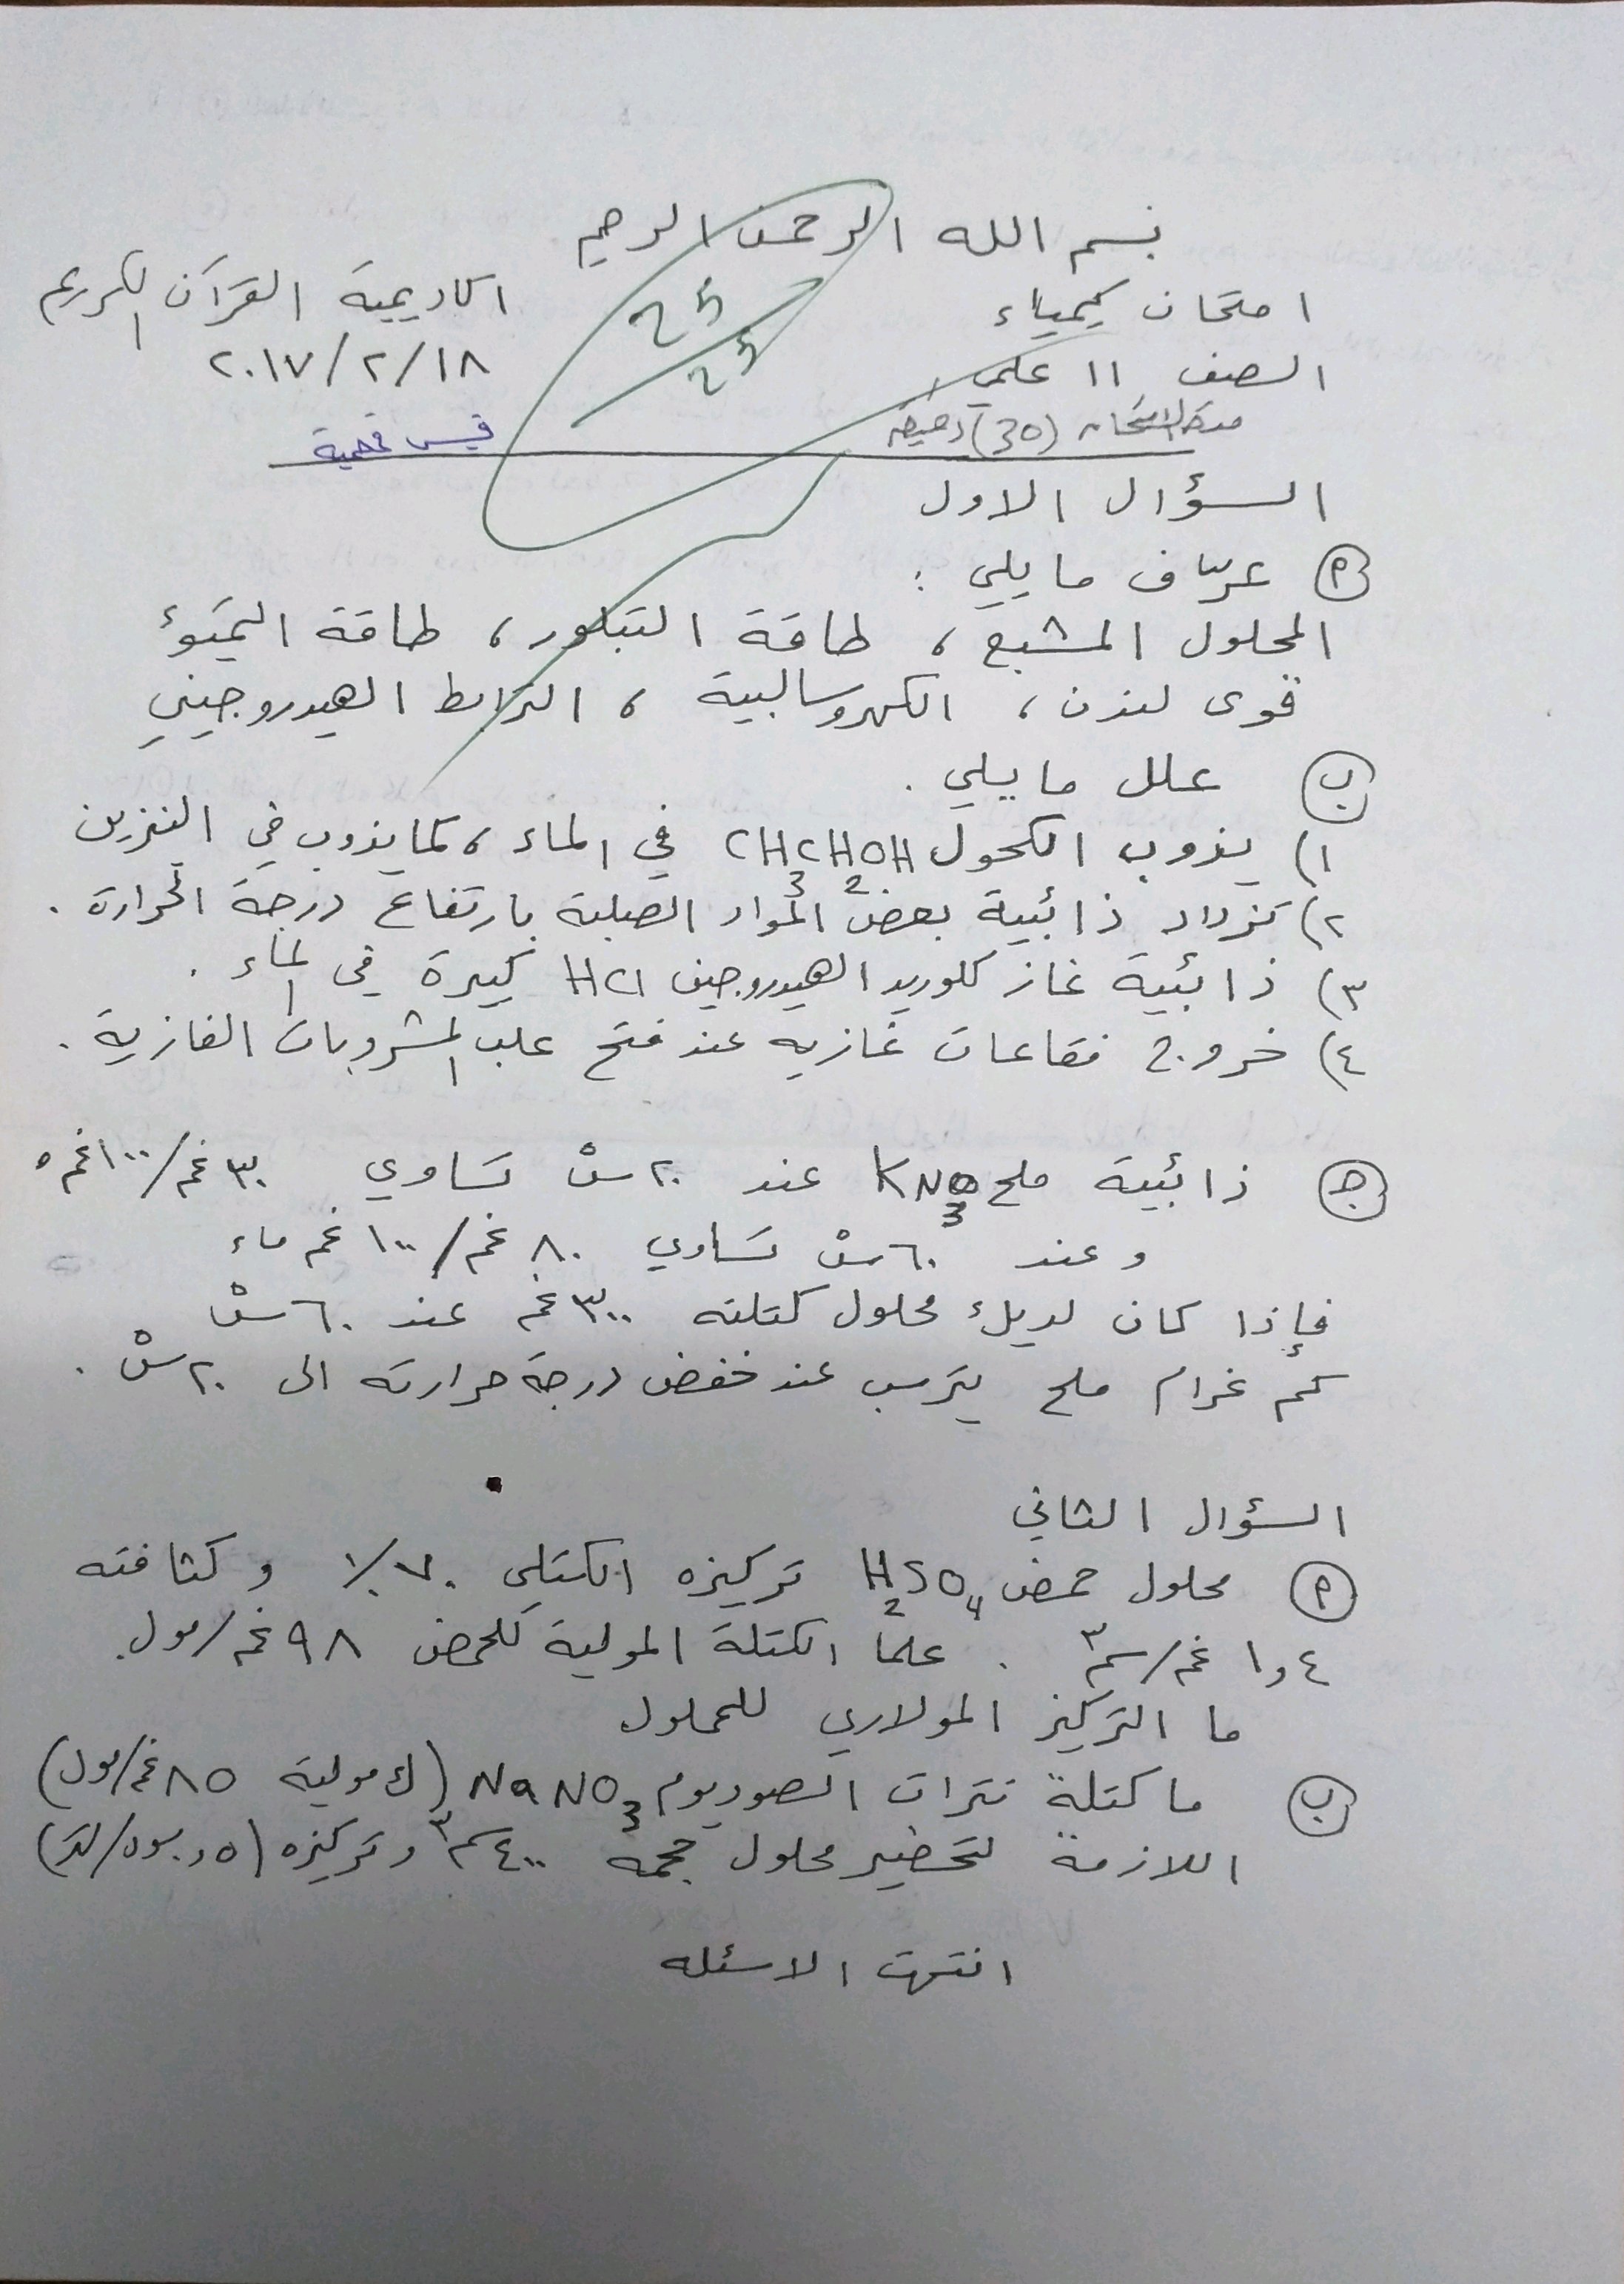 بسم الله الرحمن الرحيم
امتحان كيمياء
اكاديمية القرآن الكريم
الصف ١١ علمي
٢٠١٧/٢/١٨
25
25
مدة الامتحان (30) دقيقة
قيس
السؤال الاول
أ عرّف ما يلي :
المحلول المشبع ، طاقة التبلور ، طاقة التميّؤ
قوى لندن ، الكهروسالبية ، الترابط الهيدروجيني
ب علل ما يلي .
١) يذوب الكحول CH3CH2OH في الماء ، كما يذوب في البنزين
٢) تزداد ذائبية بعض المواد الصلبة بارتفاع درجة الحرارة .
٣) ذائبية غاز كلوريد الهيدروجين HCl كبيرة في الماء .
٤) خروج فقاعات غازيه عند فتح علب المشروبات الغازية .
ج ذائبية ملح KNO3 عند ٢٠ سْ تساوي ٣٠ غم/١٠٠ غم ء
وعند ٦٠ سْ تساوي ٨٠ غم/١٠٠ غم ماء
فإذا كان لديك محلول كتلته ٣٠٠ غم عند ٦٠ سْ
كم غرام ملح يترسب عند خفض درجة حرارته الى ٢٠ سْ .
السؤال الثاني
أ محلول حمض H2SO4 تركيزه الكتلي ٧٠٪ وكثافته
١,٤ غم/سم٣ . علماً الكتلة المولية للحمض ٩٨ غم/مول.
ما التركيز المولاري للمحلول
ب ما كتلة نترات الصوديوم NaNO3 (ك مولية ٨٥ غم/مول)
اللازمة لتحضير محلول حجمه ٤٠٠ سم٣ وتركيزه (٠,٥ مول/لتر)
انتهت الاسئله